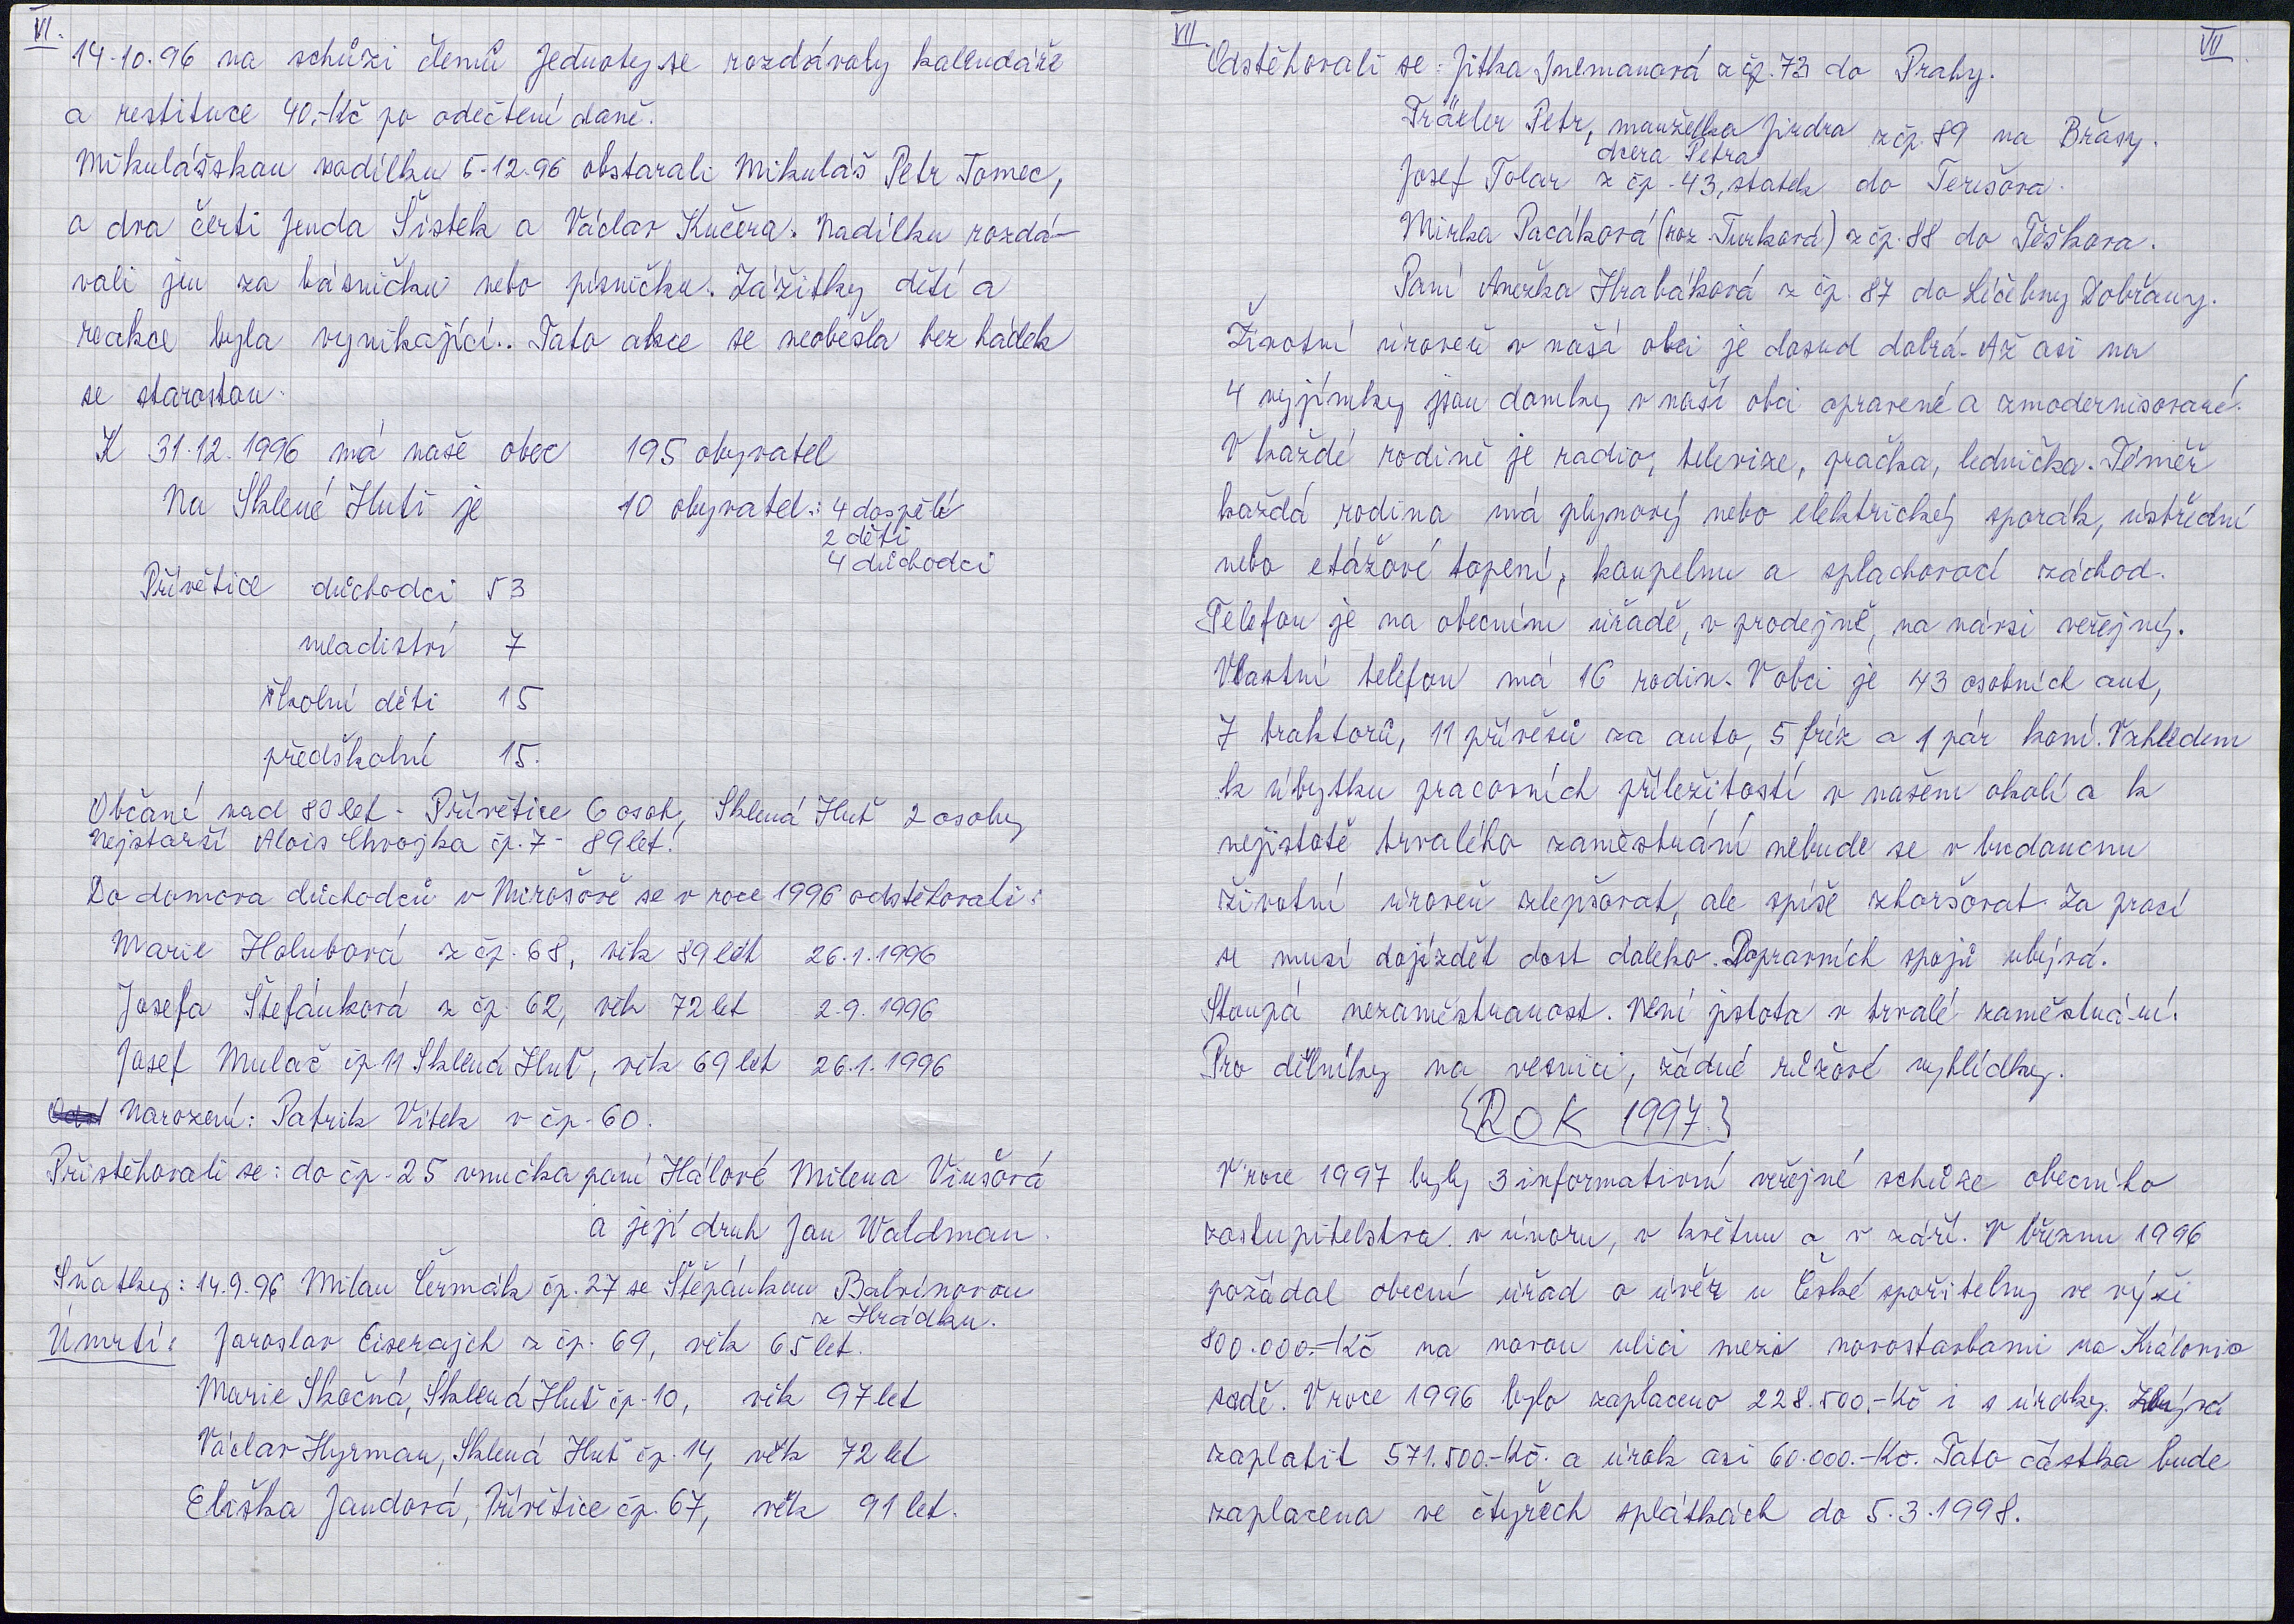 VI.
14.10.96 na schůzi členů Jednoty se rozdávaly kalendáře
a restituce 40,-Kč po odečtení daně.
Mikulášskou nadílku 5.12.96 obstarali Mikuláš Petr Tomec,
a dva čerti Jenda Šístek a Václav Kučera. Nadílku rozdá-
vali jen za básničku nebo písničku. Zážitky dětí a
reakce byla vynikající.. Tato akce se neobešla bez hádek
se starostou.
K 31.12.1996 má naše obec 195 obyvatel
Na Sklené Huti je 10 obyvatel.: 4 dospělé
2 děti
4 důchodci
Přívětice důchodci 53
mladiství 7
školní děti 15
předškolní 15.
Občané nad 80 let - Přívětice 6 osob, Sklená Huť 2 osoby
Nejstarší Alois Chvojka čp. 7 - 89 let!
Do domova důchodců v Mirošově se v roce 1996 odstěhovali:
Marie Holubová z čp. 68, věk 89 let 26.1.1996
Josefa Štefánková z čp. 62, věk 72 let 2.9.1996
Josef Mulač čp 11 Sklená Huť, věk 69 let 26.1.1996
Narození: Patrik Vítek v čp. 60.
Přistěhovali se: do čp. 25 vnučka paní Hálové Milena Vinšová
a její druh Jan Waldman.
Sňatky: 14.9.96 Milan Čermák čp. 27 se Štěpánkou Balvínovou
z Hrádku.
Úmrtí: Jaroslav Eiserajch z čp. 69, věk 65 let.
Marie Skočná, Sklená Huť čp. 10, věk 97 let
Václav Hyrman, Sklená Huť čp. 14, věk 72 let
Eliška Jandová, Přívětice čp. 67, věk 91 let.
VII. VII
Odstěhovali se: Jitka Inemanová z čp. 73 do Prahy.
Träxler Petr, manželka Jindra z čp. 89 na Břasy.
dcera Petra
Josef Tolar z čp. 43, statek do Terešova.
Mirka Pacáková (roz. Turková) z čp. 88 do Těškova.
Paní Anežka Hrabáková z čp. 87 do Léčebny Dobřany.
Životní úroveň v naší obci je dosud dobrá. Až asi na
4 vyjímky jsou domky v naší obci opravené a zmodernisované.
V každé rodině je radio, televize, pračka, lednička. Téměř
každá rodina má plynový nebo elektrický sporák, ústřední
nebo etážové topení, koupelnu a splachovací záchod.
Telefon je na obecním úřadě, v prodejně, na návsi veřejný.
Vlastní telefon má 16 rodin. V obci je 43 osobních aut,
7 traktorů, 11 přívěsů za auto, 5 fréz a 1 pár koní. Vzhledem
k úbytku pracovních příležitostí v našem okolí a k
nejistotě trvalého zaměstnání nebude se v budoucnu
životní úroveň zlepšovat, ale spíše zhoršovat. Za prací
se musí dojíždět dost daleko. Dopravních spojů ubývá.
Stoupá nezaměstnanost. Není jistota v trvalé zaměstná-ní.
Pro dělníky na vesnici, žádné růžové vyhlídky.
{ROK 1997.}
V roce 1997 byly 3 informativní veřejné schůze obecního
zastupitelstva. v únoru, v květnu a v září. V březnu 1996
požádal obecní úřad o úvěr u České spořitelny ve výši
800.000.-Kč na novou ulici mezi novostavbami na Královic
sadě. V roce 1996 bylo zaplaceno 228.500,-Kč i s úroky. Zbývá
zaplatit 571.500.-Kč. a úrok asi 60.000.-Kč. Tato částka bude
zaplacena ve čtyřech splátkách do 5.3.1998.